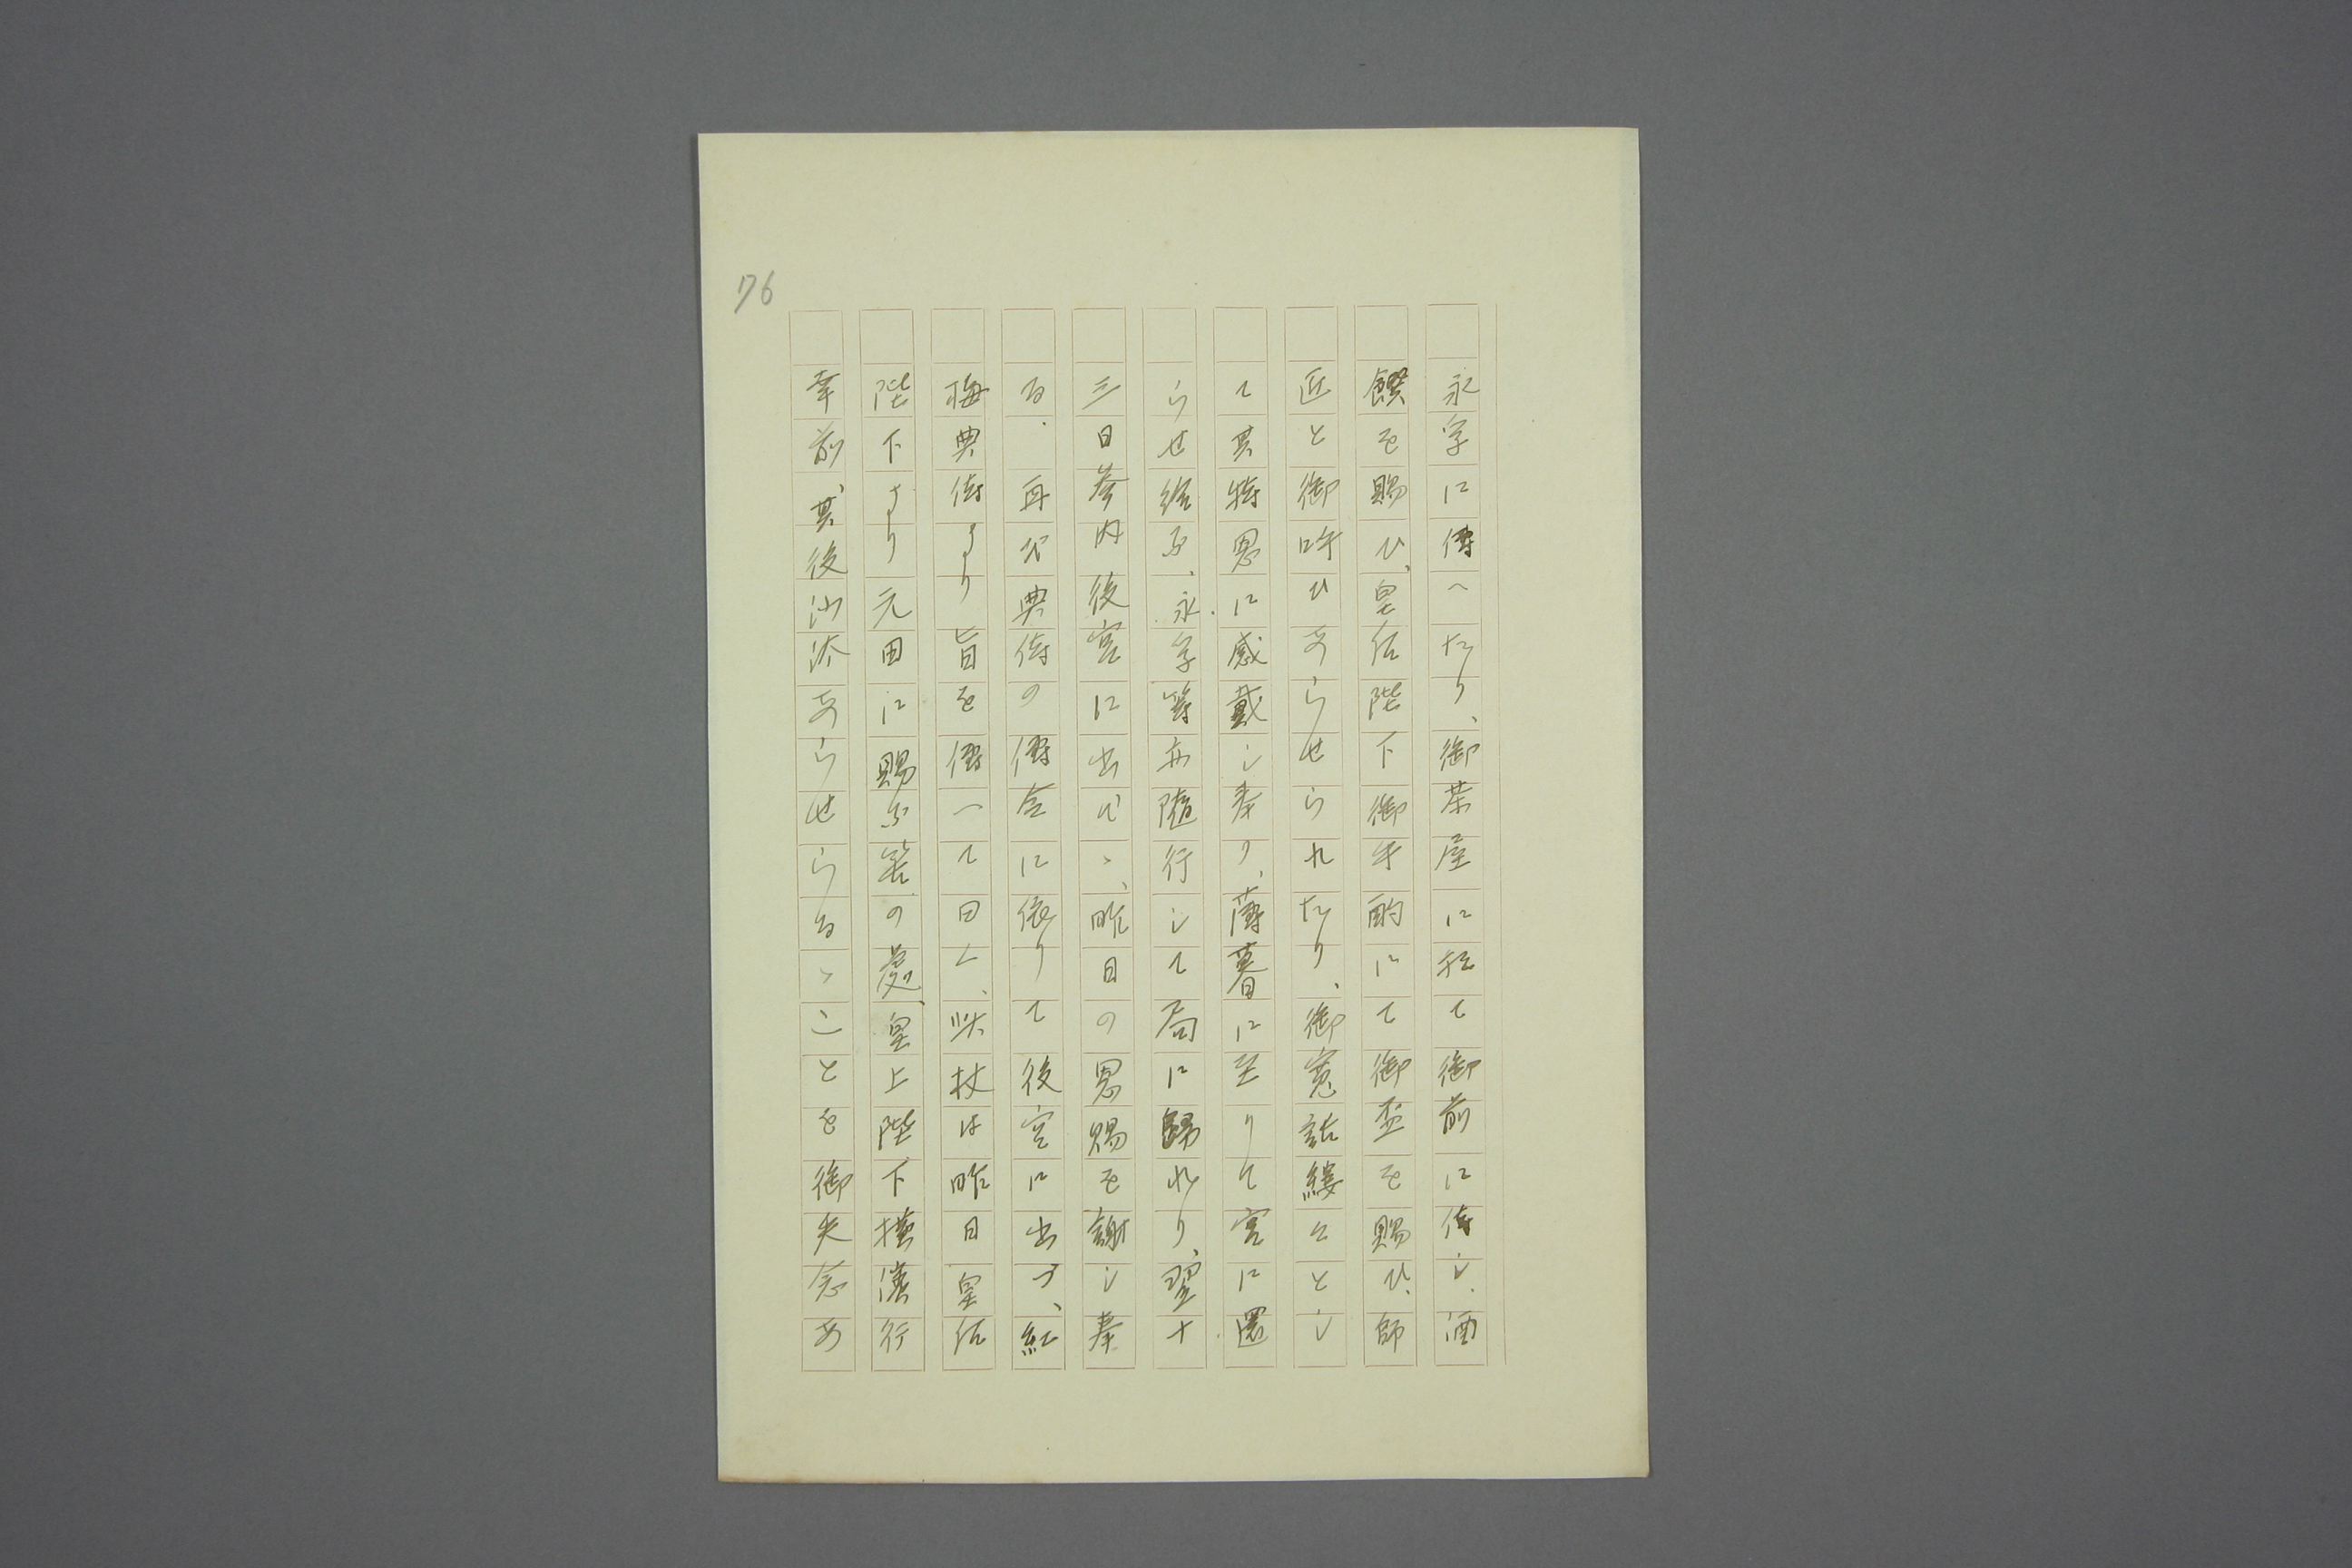 76
永孚に傳へたり、御茶屋に於て御前に侍し、酒
饌を賜ひ、皇后陛下御手酌にて御盃を賜ひ、師
匠と御呼ひあらせられたり、御寛話縷々とし
て其特恩に感戴し奉り、薄暮に至りて宮に還
らせ給ふ、永孚等亦随行して局に歸れり、翌十
三日参内後宮に出で、昨日の恩賜を謝し奉
る、再び典侍の傳令に依りて後宮に出づ、紅
梅典侍より旨を傳へて曰く、柴杖は昨日皇后
陛下より元田に賜ふ筈の處、皇上陛下横濱行
幸前、其後沙汰あらせらるゝことを御失念あ